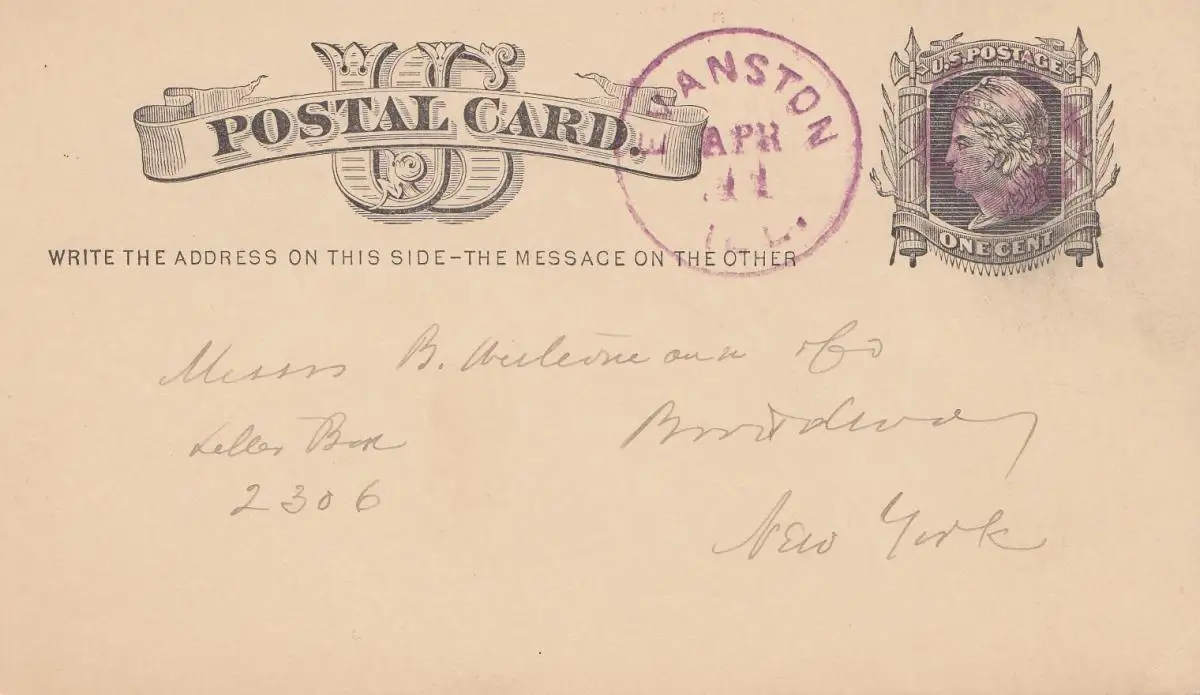 US
POSTAL CARD.
EVANSTON
APR
11
ILL.
U.S. POSTAGE
ONE CENT
WRITE THE ADDRESS ON THIS SIDE-THE MESSAGE ON THE OTHER
Messrs B. &Co
Broadway
Letter Box
2306
New York